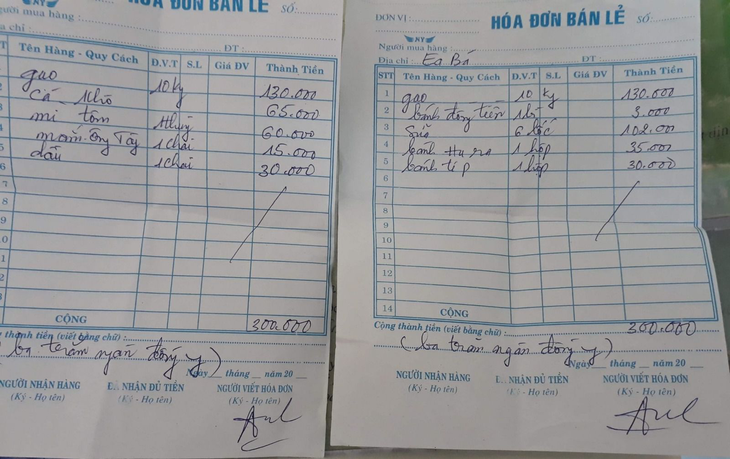 HÓA ĐƠN BÁN LẺ SỐ:
gười mua hàng
a chỉ : ĐT :
TT Tên Hàng - Quy Cách Đ.V.T S.L Giá ĐV Thành Tiền
gạo 10 kg 130.000
2 cá khô 65.000
mì tôm 1 thùng 60.000
mắm ông Tây 1 chai 15.000
5 dầu 1 chai 30.000
6
7
8
9
0
1
2
3
CỘNG 300.000
g thành tiền (viết bằng chữ) :
(ba trăm ngàn đồng y)
Ngày __ tháng __ năm 20 __
NGƯỜI NHẬN HÀNG
(Ký - Họ tên)
NHẬN ĐỦ TIỀN
(Ký - Họ tên)
NGƯỜI VIẾT HÓA ĐƠN
(Ký - Họ tên)
ĐƠN VỊ : HÓA ĐƠN BÁN LẺ SỐ:
Người mua hàng :
Địa chỉ : Ea Bá ĐT :
STT Tên Hàng - Quy Cách Đ.V.T S.L Giá ĐV Thành Tiền
1 gạo 10 kg 130.000
2 bánh đồng tiền 3.000
3 sữa 6 lốc 102.000
4 bánh Hu ra 1 hộp 35.000
5 bánh típ 1 hộp 30.000
6
7
8
9
10
11
12
13
14 CỘNG
Cộng thành tiền (viết bằng chữ) : 300.000
(ba trăm ngàn đồng y)
Ngày __ tháng __ năm 20 __
NGƯỜI NHẬN HÀNG
(Ký - Họ tên)
NHẬN ĐỦ TIỀN
(Ký - Họ tên)
NGƯỜI VIẾT HÓA ĐƠN
(Ký - Họ tên)